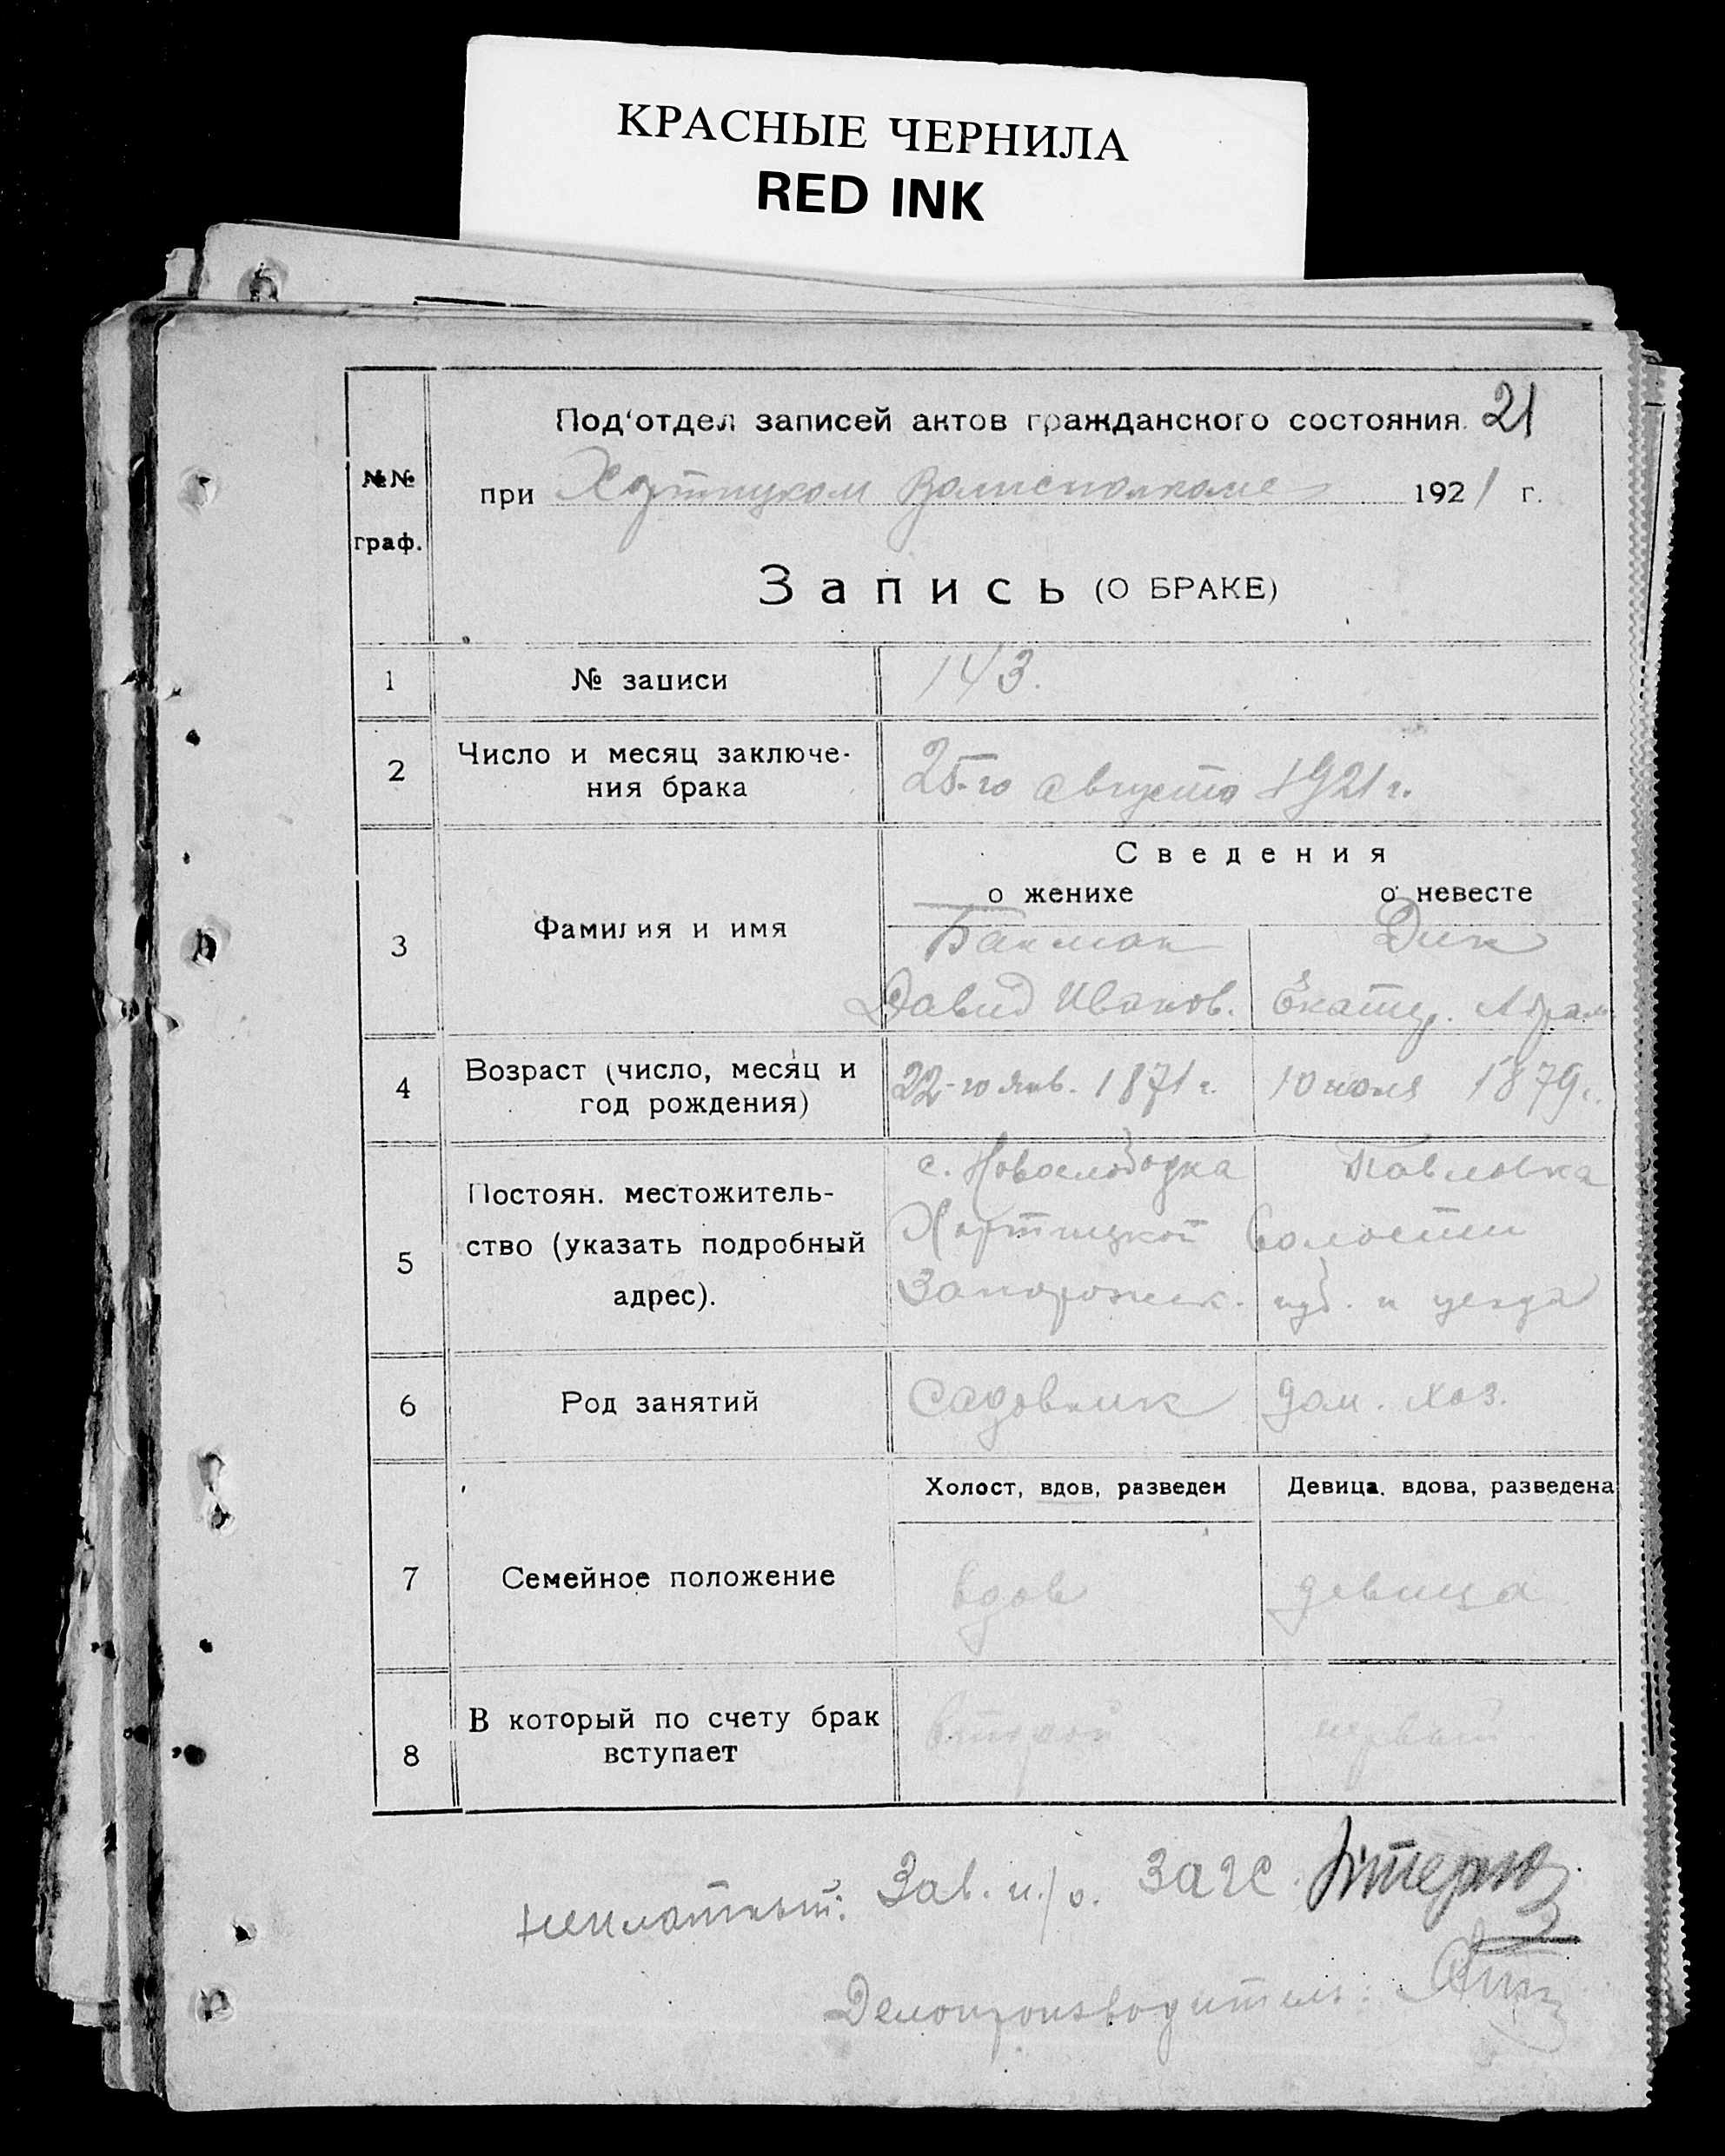 КРАСНЫЕ ЧЕРНИЛА
RED INK
Под'отдел записей актов гражданского состояния. 21
№№ граф.
при Хортицком Волисполкоме 1921 г.
Запись (О БРАКЕ)
1 № записи 143.
2 Число и месяц заключе-
ния брака 25-го августа 1921 г.
Сведения
о женихе о невесте
3 Фамилия и имя Бакман Дик
Давид Иванов. Екатер. Абрам
4 Возраст (число, месяц и
год рождения) 22-го янв. 1871 г. 10 июля 1879 г.
5 Постоян. местожитель-
ство (указать подробный
адрес).
с. Новослободка Павловка
Хортицкой волости
Запорожск. губ. и уезда
6 Род занятий Садовник дом. хоз.
Холост, вдов, разведен Девица, вдова, разведена
7 Семейное положение вдов девица
8 В который по счету брак
вступает второй первый
Зав. п/о. ЗАГС.
Делопроизводитель: